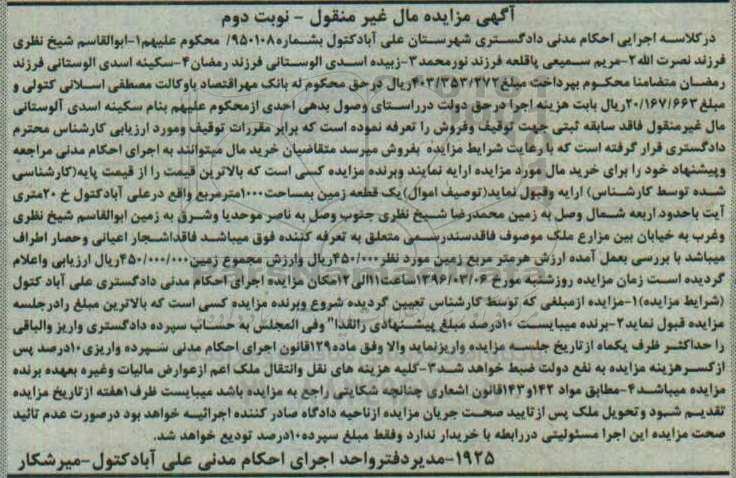 آگهی مزایده مال غیر منقول - نوبت دوم
درکلاسه اجرایی احکام مدنی دادگستری شهرستان علی آبادکتول بشماره۹۵۰۱۰۸/ محکوم علیهم۱-ابوالقاسم شیخ نظری
فرزند نصرت الله۲-مریم سمیعی پاقلعه فرزند نورمحمد۳-زبیده اسدی الوستانی فرزند رمضان۴-سکینه اسدی الوستانی فرزند
رمضان متضامنا محکوم بپرداخت مبلغ۴۰۳/۳۵۳/۲۷۲ریال درحق محکوم له بانک مهراقتصاد باوکالت مصطفی اسلانی کتولی و
مبلغ۲۰/۱۶۷/۶۶۳ریال بابت هزینه اجرا درحق دولت درراستای وصول بدهی احدی ازمحکوم علیهم بنام سکینه اسدی آلوستانی
مال غیرمنقول فاقد سابقه ثبتی جهت توقیف وفروش را تعرفه نموده است که برابر مقررات توقیف ومورد ارزیابی کارشناس محترم
دادگستری قرار گرفته است که با رعایت شرایط مزایده بفروش میرسد متقاضیان خرید مال میتوانند به اجرای احکام مدنی مراجعه
وپیشنهاد خود را برای خرید مال مورد مزایده ارایه نمایند وبرنده مزایده کسی است که بالاترین قیمت را از قیمت پایه(کارشناسی
شده توسط کارشناس) ارایه وقبول نماید(توصیف اموال)یک قطعه زمین بمساحت۱۰۰۰مترمربع واقع درعلی آبادکتول خ ۲۰متری
آیت باحدود اربعه شمال وصل به زمین محمدرضا شیخ نظری جنوب وصل به ناصر موحدیا وشرق به زمین ابوالقاسم شیخ نظری
وغرب به خیابان بین مزارع ملک موصوف فاقدسندرسمی متعلق به تعرفه کننده فوق میباشد فاقداشجار اعیانی وحصار اطراف
میباشد با بررسی بعمل آمده ارزش هرمتر مربع زمین مورد نظر۴۵۰/۰۰۰ریال وارزش مجموع زمین۴۵۰/۰۰۰/۰۰۰ریال ارزیابی واعلام
گردیده است زمان مزایده روزشنبه مورخ ۱۳۹۶/۰۳/۰۶ساعت۱۱الی۱۲مکان مزایده اجرای احکام مدنی دادگستری علی آباد کتول
(شرایط مزایده)۱-مزایده ازمبلغی که توسط کارشناس تعیین گردیده شروع وبرنده مزایده کسی است که بالاترین مبلغ رادرجلسه
مزایده قبول نماید۲-برنده میبایست ۱۰درصد مبلغ پیشنهادی رانقدا" وفی المجلس به حساب سپرده دادگستری واریز والباقی
را حداکثر ظرف یکماه ازتاریخ جلسه مزایده واریزنماید والا وفق ماده۱۲۹قانون اجرای احکام مدنی سپرده واریزی۱۰درصد پس
ازکسرهزینه مزایده به نفع دولت ضبط خواهد شد۳-کلیه هزینه های نقل وانتقال ملک اعم ازعوارض مالیات وغیره بعهده برنده
مزایده میباشد۴-مطابق مواد ۱۴۲و۱۴۳قانون اشعاری چنانچه شکایتی راجع به مزایده باشد میبایست ظرف۱هفته ازتاریخ مزایده
تقدیم شود وتحویل ملک پس ازتایید صحت جریان مزایده ازناحیه دادگاه صادر کننده اجرائیه خواهد بود درصورت عدم تائید
صحت مزایده این اجرا مسئولیتی دررابطه با خریدار ندارد وفقط مبلغ سپرده۱۰درصد تودیع خواهد شد.
۱۹۲۵-مدیردفترواحد اجرای احکام مدنی علی آبادکتول-میرشکار